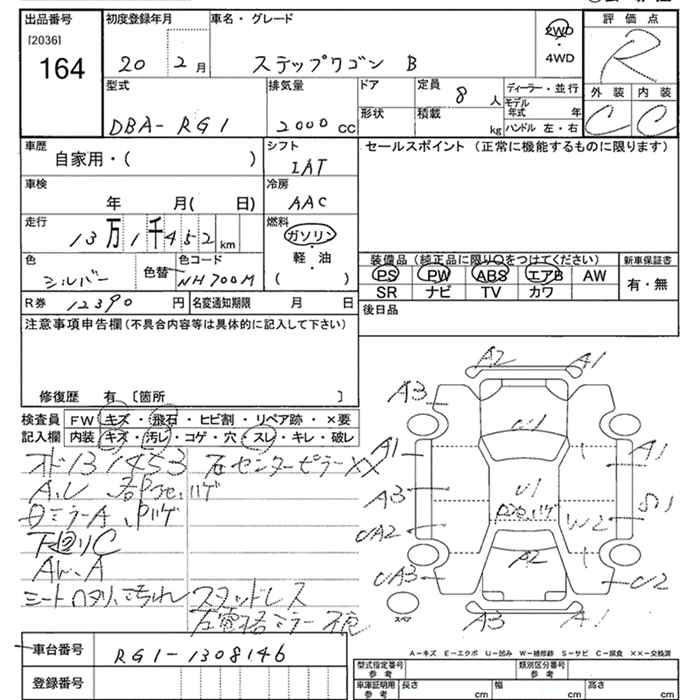 出品番号
[2036]
164
初度登録年月
20 2 月
車名・グレード
ステップワゴン B
2WD
・
4WD
評価点
R
外装 内装
C C
型式
DBA-RG1
排気量
2000 CC
ドア
形状
定員 8 人
積載 kg
ディーラー・並行
モデル年式 年
ハンドル 左・右
車歴
自家用・( )
シフト
IAT
セールスポイント (正常に機能するものに限ります)
車検
年 月( 日)
冷房
AAC
走行
13万1千452 km
燃料
ガソリン
軽・油
・
( )
色
シルバー
色替
色コード
NH700M
装備品 (純正品に限り○をつけてください)
PS PW ABS エアB AW
SR ナビ TV カワ
新車保証書
有・無
R券 12390 円
名変通知期限 月 日
後日品
注意事項申告欄 (不具合内容等は具体的に記入して下さい)
修復歴 有 〔箇所 〕
検査員
記入欄
FW キズ・飛石・ヒビ割・リペア跡・×要
内装 キズ・汚レ・コゲ・穴・スレ・キレ・破レ
オド131453 右センターピラーXX
下回りC
スタットレス
A2 A1
A3
U1
A1 A1
A3 U1
UA2 W2
A2
UA3 U2
A3 A1
スペア
A-キズ E-エクボ U-凹み W-補修跡 S-サビ C-腐食 ××-交換済
車台番号
RG1-1308146
登録番号
型式指定番号
参考
類別区分番号
参考
車庫証明用
参考
長さ cm
幅 cm
高さ cm